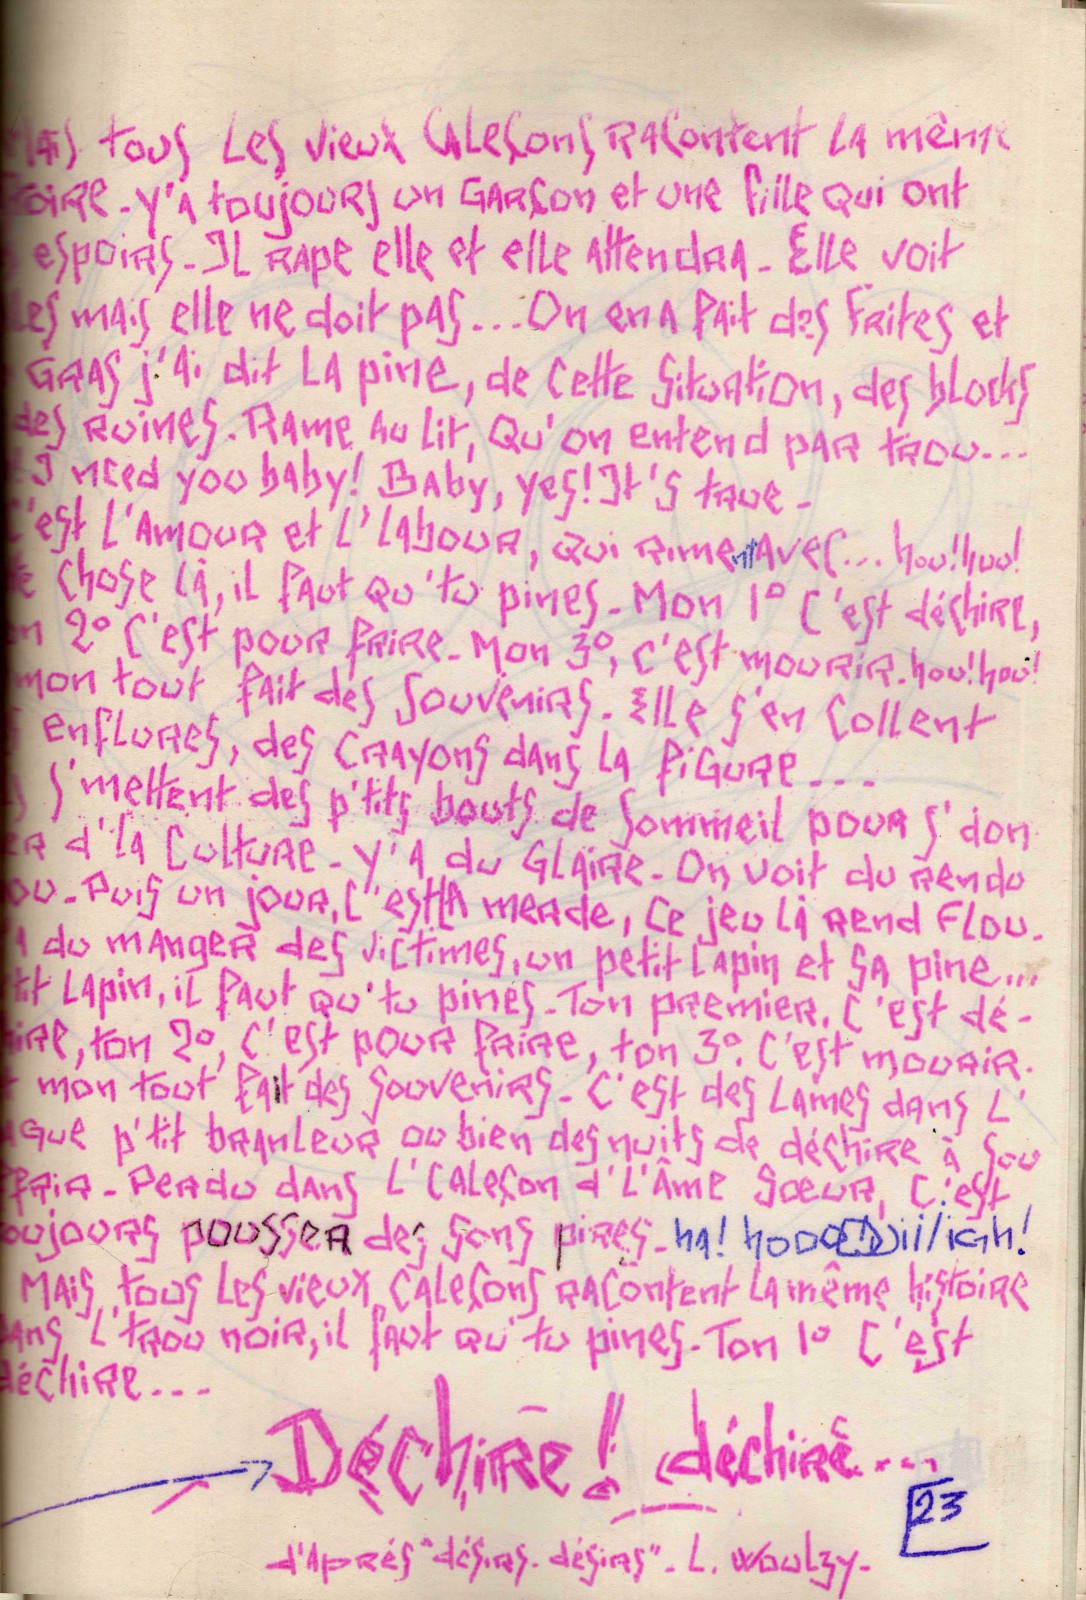 Mais tous les vieux caleçons racontent la même
toire - y'a toujours un garçon et une fille qui ont
espoirs - Il rape elle et elle attendra - Elle voit
les mais elle ne doit pas... On en a fait des frites et
gras j'ai dit la pine, de cette situation, des blocks
des ruines. Rame au lit, qu'on entend par trou...
I need you baby! Baby, yes! It's true -
C'est l'amour et l'labour, qui riment avec... hou! huo!
te chose là, il faut qu'tu pines - Mon 1° c'est déchire,
on 2° c'est pour frire - Mon 3°, c'est mourir. hou! hou!
mon tout fait des souvenirs - Elle s'en collent
s enflures, des crayons dans la figure ----
s s'mettent des p'tits bouts de sommeil pour s'don
er d'la culture - y'a du glaire - On voit du rendu
ou - Puis un jour, c'est la merde, ce jeu là rend flou -
a du manger des victimes, un petit lapin et sa pine...
tit lapin, il faut qu'tu pines - Ton premier, c'est dé-
hire, ton 2°, c'est pour frire, ton 3°. c'est mourir.
t mon tout fait des souvenirs - C'est des lames dans l'
ague p'tit branleur ou bien des nuits de déchire à sou
ffrir - Perdu dans l'caleçon d'l'âme sœur, c'est
oujours pousser des sons pires - ha! hooo
Mais, tous les vieux caleçons racontent la même histoire
ans l'trou noir, il faut qu'tu pines - Ton 1° c'est
déchire ---
Déchire! déchire....
23
d'après "désirs. désirs" - L. Woulzy -